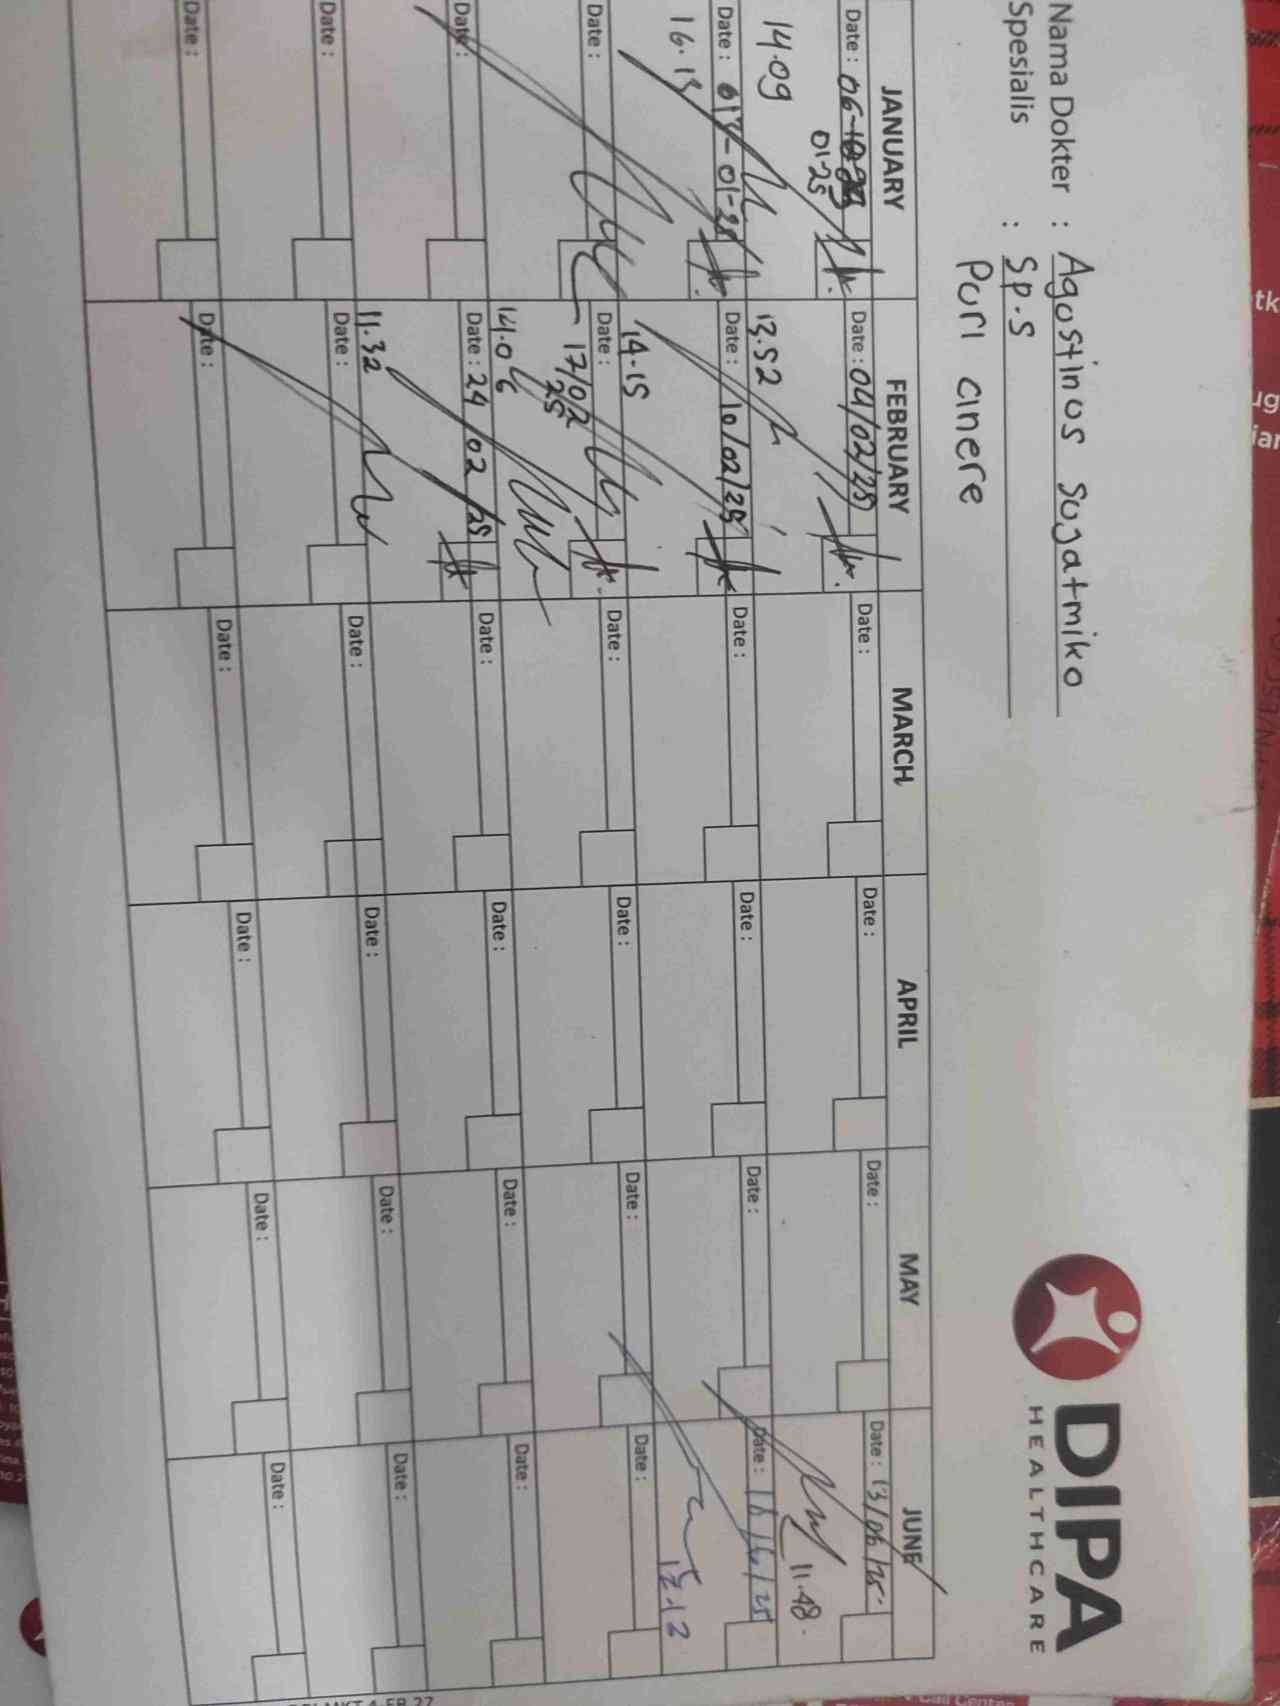 Nama Dokter : Agustinus Sugatmiko
Spesialis : Sp.S
Puri cinere
DIPA
HEALTHCARE
JANUARY FEBRUARY MARCH APRIL MAY JUNE
Date : 06- 01-25 Date : 04/02/25 Date : Date : Date : Date : 13/06/25
14.09 13.52 11.48
Date : 017-01-25 Date : 10/02/25 Date : Date : Date : Date :
16.13 14.15 12.12
Date : Date : 17/02 25 Date : Date : Date : Date :
14.06
Date : Date : 24/02/25 Date : Date : Date : Date :
11.32
Date : Date : Date : Date : Date : Date :
Date : Date : Date : Date : Date : Date :